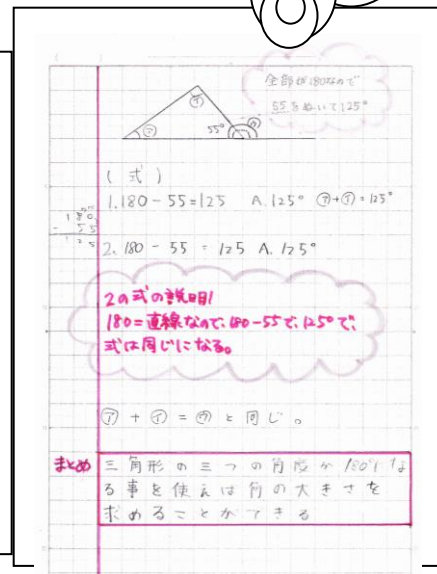 全部が180なので
55をぬいて125°
㋐
㋑
55°
㋒
(式)
1. 180-55=125 A. 125° ㋐+㋑=125°
180
-55
125
2. 180-55=125 A. 125°
2の式の説明!
180=直線なので、180-55で、125°で、
式は同じになる。
㋐+㋑=㋒と同じ。
まとめ
三角形の三つの角度が180°にな
る事を使えば角の大きさを
求めることができる